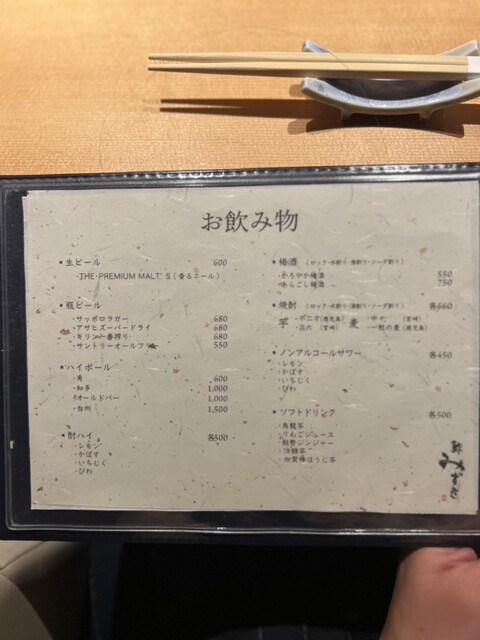 お飲み物
・生ビール 600
・THE PREMIUM MALT'S(香るエール)
・瓶ビール
・サッポロラガー 680
・アサヒスーパードライ 680
・キリン一番搾り 680
・サントリーオールフリー 550
・ハイボール
・角 600
・知多 1,000
・オールドパー 1,000
・白州 1,500
・酎ハイ 各500
・レモン
・かぼす
・いちじく
・びわ
・梅酒 (ロック・水割り・湯割り・ソーダ割り)
・まろやか梅酒 550
・あらごし梅酒 750
・焼酎 (ロック・水割り・湯割り・ソーダ割り) 各660
芋 (鹿児島) 麦 (宮崎)
(宮崎) ・一粒の麦(鹿児島)
・ノンアルコールサワー 各450
・レモン
・かぼす
・いちじく
・びわ
・ソフトドリンク 各500
・烏龍茶
・りんごジュース
・能勢ジンジャー
・冷緑茶
・加賀棒ほうじ茶